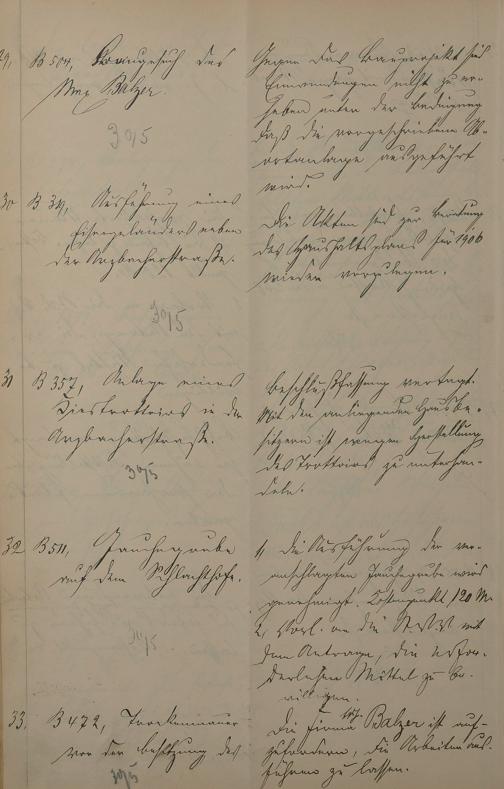 29, B 504, Baugesuch des
Max Balzer.
30/5
Gegen das Bauprojekt sind
Einwendungen nicht zu er-
heben unter der Bedingung
daß die vorgeschriebene Ab-
ortanlage ausgeführt
wird.
30 B 34, Ausführung eines
Eisengeländers neben
der Arzbacherstraße.
30/5
Die Akten sind zur Beratung
des Haushaltsplans für 1906
wieder vorzulegen.
31 B 357, Anlage eines
Kiestrottoirs in der
Arzbacherstraße.
30/5
Beschlußfassung vertagt.
Mit den anliegenden Hausbe-
sitzern ist wegen Herstellung
des Trottoirs zu unterhan-
deln.
32 B 511, Jauchegrube
auf dem Schlachthofe.
30/5
1, Die Ausführung der ver-
anschlagten Jauchegrube wird
genehmigt. Kostenpunkt 120 M
2, Vorl. an die St.V.V. mit
dem Antrage, die erfor-
derlichen Mittel zu be-
willigen.
33, B 472, Trockenmauer
vor der Besitzung des
30/5
Die Firma Balzer ist auf-
zufordern, die Arbeiten aus-
führen zu lassen.